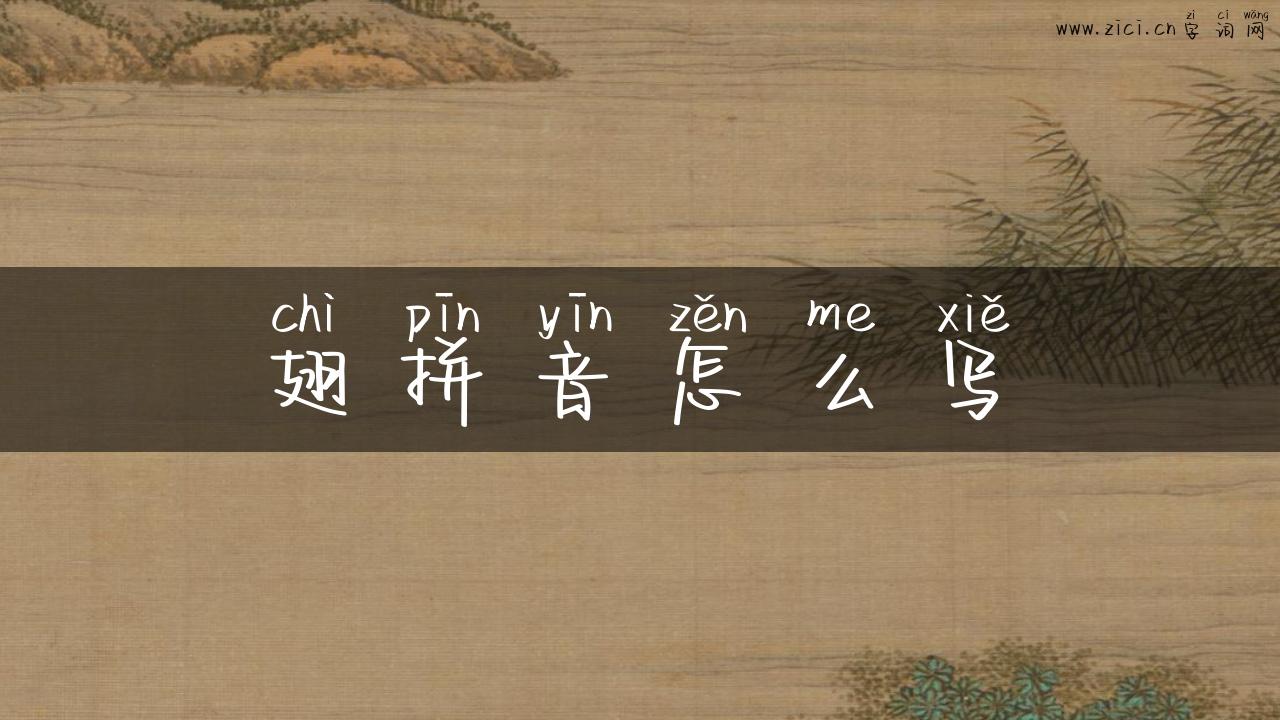 zì cí wǎng
www.zici.cn 字词网
chì pīn yīn zěn me xiě
翅拼音怎么写